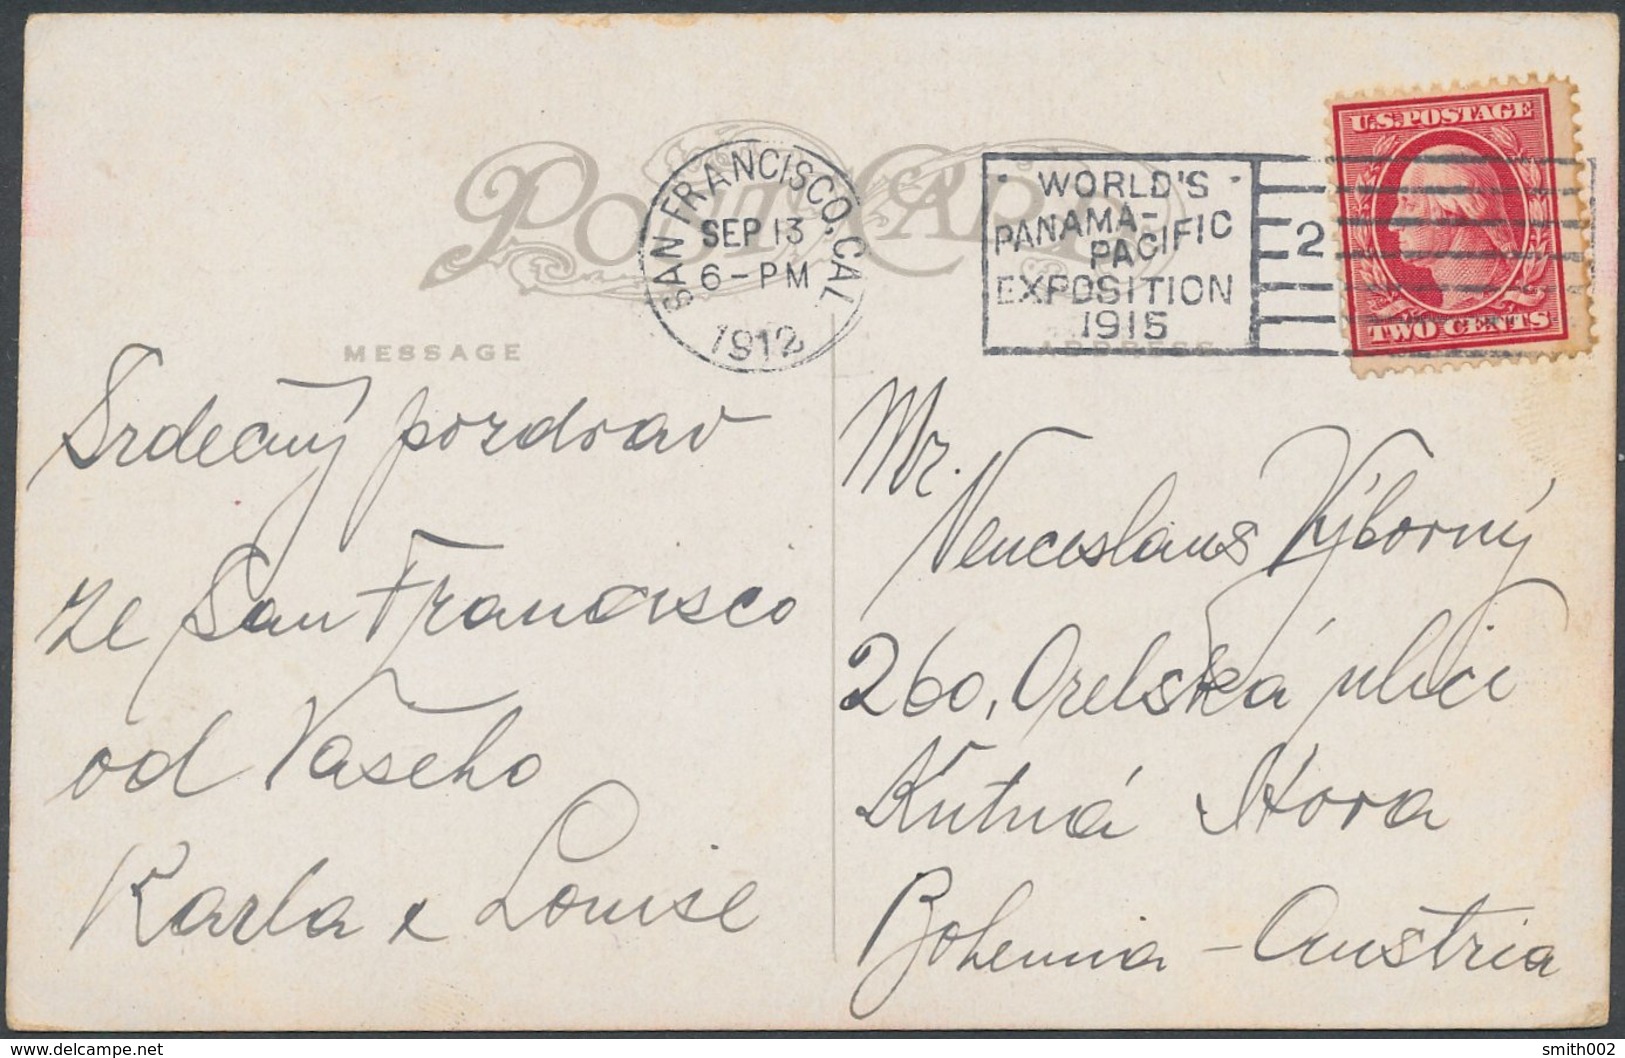 POST CARD
SAN FRANCISCO, CAL.
SEP 13
6-PM
1912
WORLD'S
PANAMA-
PACIFIC
EXPOSITION
1915
2
U.S. POSTAGE
TWO CENTS
MESSAGE
ADDRESS
Srdečný pozdrav
ze San Francisco
od Vašeho
Karla e Louise
Mr.
Venceslaus Výborný
260, Orelská ulici
Kutná Hora
Bohemia - Austria
www.delcampe.net
smith002